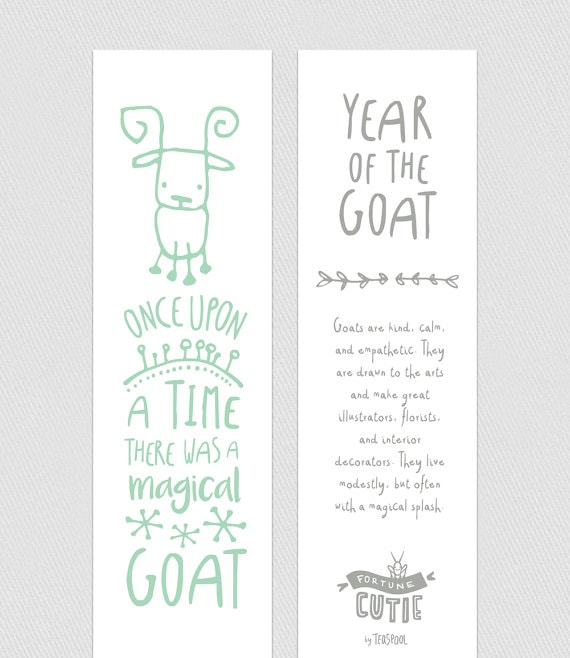 ONCE UPON
A TIME
THERE WAS A
magical
GOAT
YEAR
OF THE
GOAT
Goats are kind, calm,
and empathetic. They
are drawn to the arts
and make great
illustrators, florists,
and interior
decorators. They live
modestly, but often
with a magical splash.
FORTUNE
CUTIE
by TEASPOOL